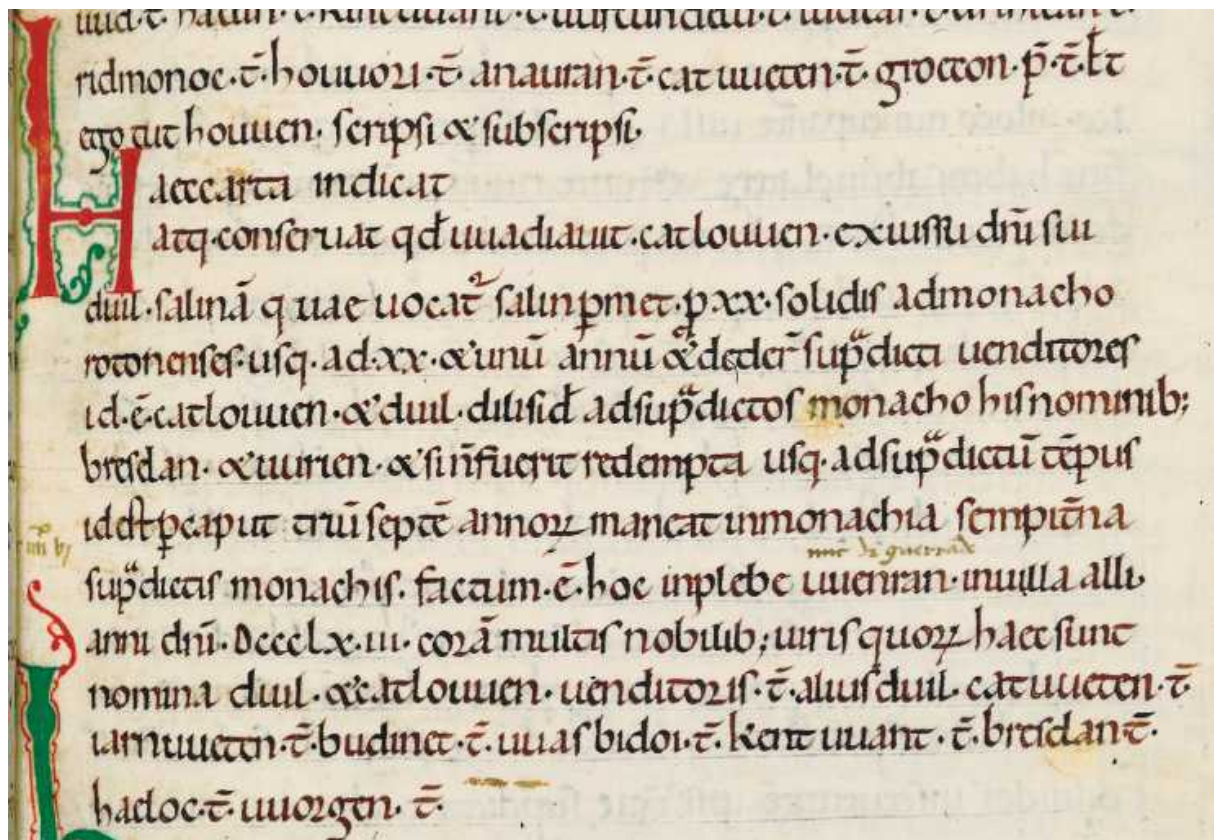 ridmonoc · t̄ · houuori · t̄ anauran · t̄ · catuueten · t̄ · grocon · p̄ · t̄ · et
ego cut houuen · scripsi & subscripsi ·
Haec carta indicat
atq · conseruat qđ uuadiauit · catlouuen · ex iussu dnī sui
duil · salinā quae uocat salin permet · p xx · solidis ad monacho
rotonenses · usq · ad · xx · & unū annū & deder supdicti uenditores
id · ē · catlouuen · & duil · dilisid ad supdictos monacho his nominib;
bresdan · & uurien · & si n̄ fuerit redempta usq · ad supdictū tēpus
id est p caput triū septē annoꝝ maneat in monachia sempitna
supdictis monachis · factum · ē · hoc in plebe uuenran · in uilla alli ·
anni dnī · DcccLx · iii · corā multis nobilib; uiris quoꝝ haec sunt
nomina duil · & catlouuen · uenditoris · t̄ · alius duil · catuueten · t̄
iarnuueten · t̄ · budinet · t̄ · uuasbidoi · t̄ · kent uuant · t̄ · bresdan · t̄ ·
hadoc · t̄ · uuorgen · t̄ ·